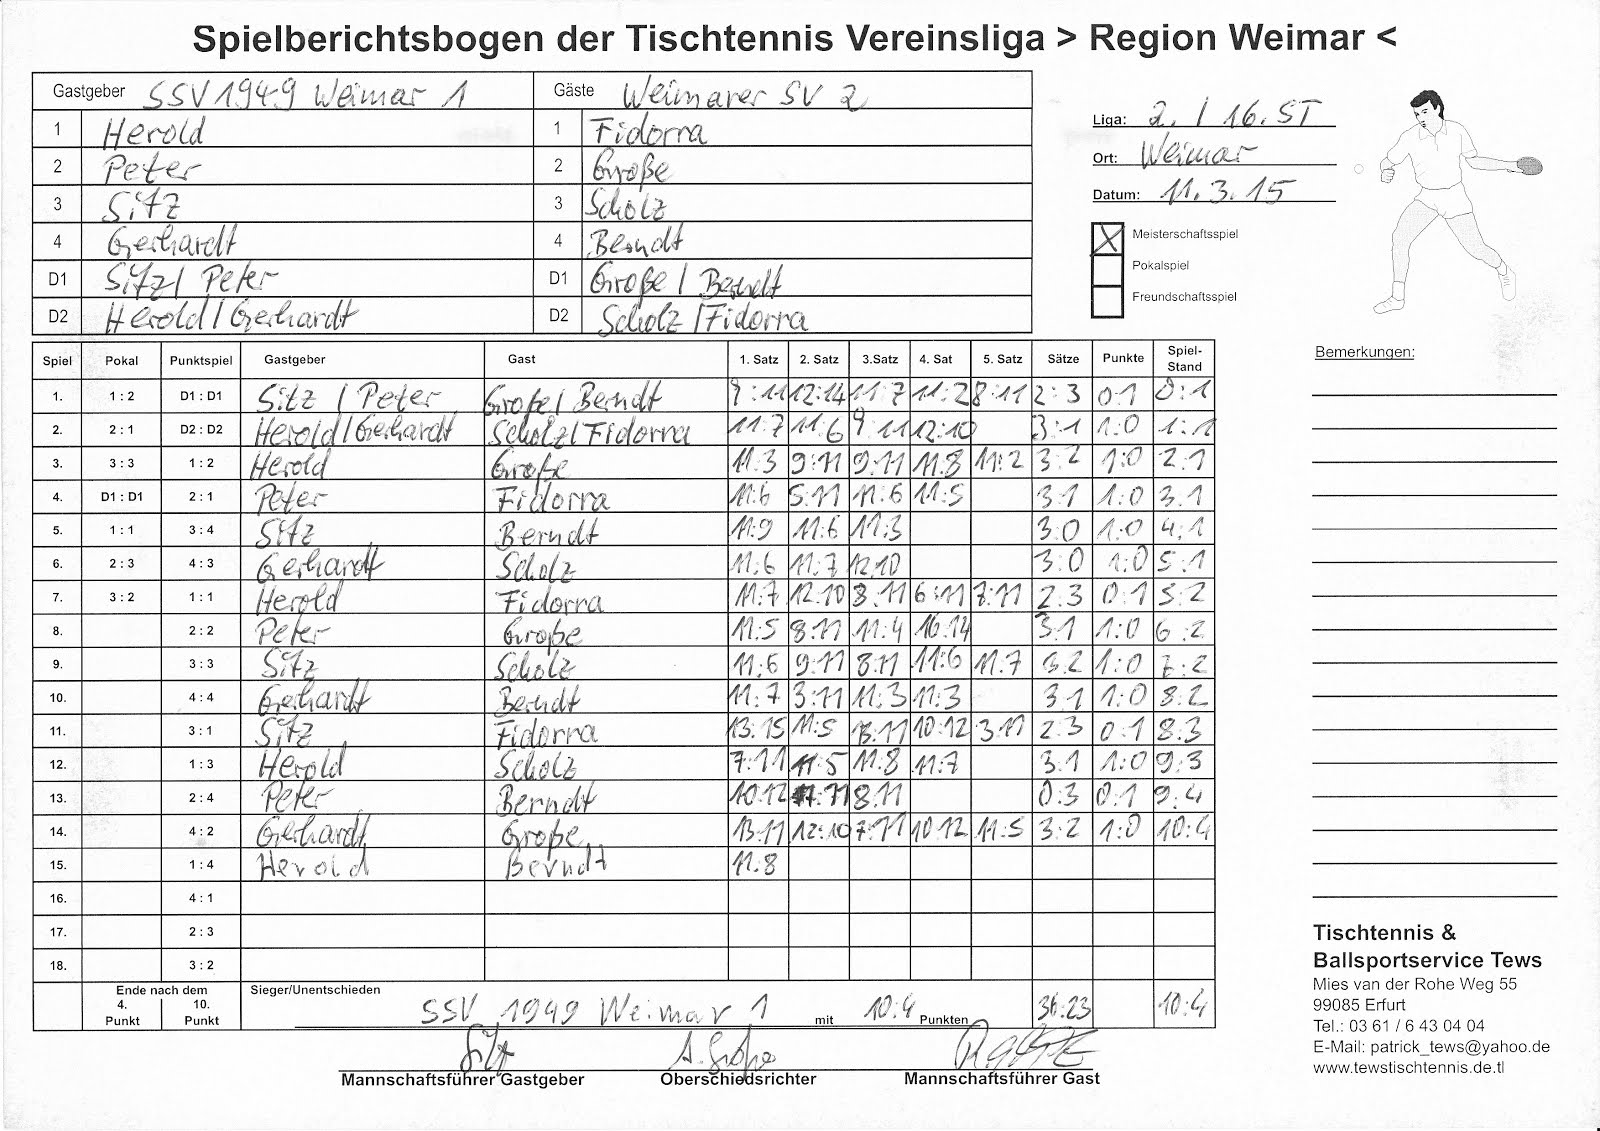 Spielberichtsbogen der Tischtennis Vereinsliga > Region Weimar <
Gastgeber SSV 1949 Weimar 1 Gäste Weimarer SV 2
1 Herold 1 Fidorra
2 Peter 2 Große
3 Sitz 3 Scholz
4 Gerhardt 4 Berndt
D1 Sitz / Peter D1 Große / Berndt
D2 Herold / Gerhardt D2 Scholz / Fidorra
Liga: 2. / 16. ST
Ort: Weimar
Datum: 11.3.15
X Meisterschaftsspiel
Pokalspiel
Freundschaftsspiel
Bemerkungen:
Spiel Pokal Punktspiel Gastgeber Gast 1. Satz 2. Satz 3.Satz 4. Sat 5. Satz Sätze Punkte Spiel-Stand
1. 1 : 2 D1 : D1 Sitz / Peter Große / Berndt 9:11 12:14 11:7 11:2 8:11 2:3 0:1 0:1
2. 2 : 1 D2 : D2 Herold / Gerhardt Scholz / Fidorra 11:7 11:6 9:11 12:10 3:1 1:0 1:1
3. 3 : 3 1 : 2 Herold Große 11:3 9:11 9:11 11:8 11:2 3:2 1:0 2:1
4. D1 : D1 2 : 1 Peter Fidorra 11:6 5:11 11:6 11:5 3:1 1:0 3:1
5. 1 : 1 3 : 4 Sitz Berndt 11:9 11:6 11:3 3:0 1:0 4:1
6. 2 : 3 4 : 3 Gerhardt Scholz 11:6 11:7 12:10 3:0 1:0 5:1
7. 3 : 2 1 : 1 Herold Fidorra 11:7 12:10 8:11 6:11 7:11 2:3 0:1 5:2
8. 2 : 2 Peter Große 11:5 8:11 11:4 16:14 3:1 1:0 6:2
9. 3 : 3 Sitz Scholz 11:6 9:11 8:11 11:6 11:7 3:2 1:0 7:2
10. 4 : 4 Gerhardt Berndt 11:7 3:11 11:3 11:3 3:1 1:0 8:2
11. 3 : 1 Sitz Fidorra 13:15 11:5 13:11 10:12 3:11 2:3 0:1 8:3
12. 1 : 3 Herold Scholz 7:11 11:5 11:8 11:7 3:1 1:0 9:3
13. 2 : 4 Peter Berndt 10:12 8:11 0:3 0:1 9:4
14. 4 : 2 Gerhardt Große 13:11 12:10 7:11 10:12 11:5 3:2 1:0 10:4
15. 1 : 4 Herold Berndt 11:8
16. 4 : 1
17. 2 : 3
18. 3 : 2
Ende nach dem
4. Punkt 10. Punkt
Sieger/Unentschieden SSV 1949 Weimar 1 mit 10:4 Punkten 36:23 10:4
Sitz A. Große
Mannschaftsführer Gastgeber Oberschiedsrichter Mannschaftsführer Gast
Tischtennis &
Ballsportservice Tews
Mies van der Rohe Weg 55
99085 Erfurt
Tel.: 03 61 / 6 43 04 04
E-Mail: patrick_tews@yahoo.de
www.tewstischtennis.de.tl